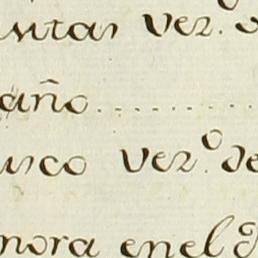 untas vez.º
año..........
usco vez.º de
nora en el